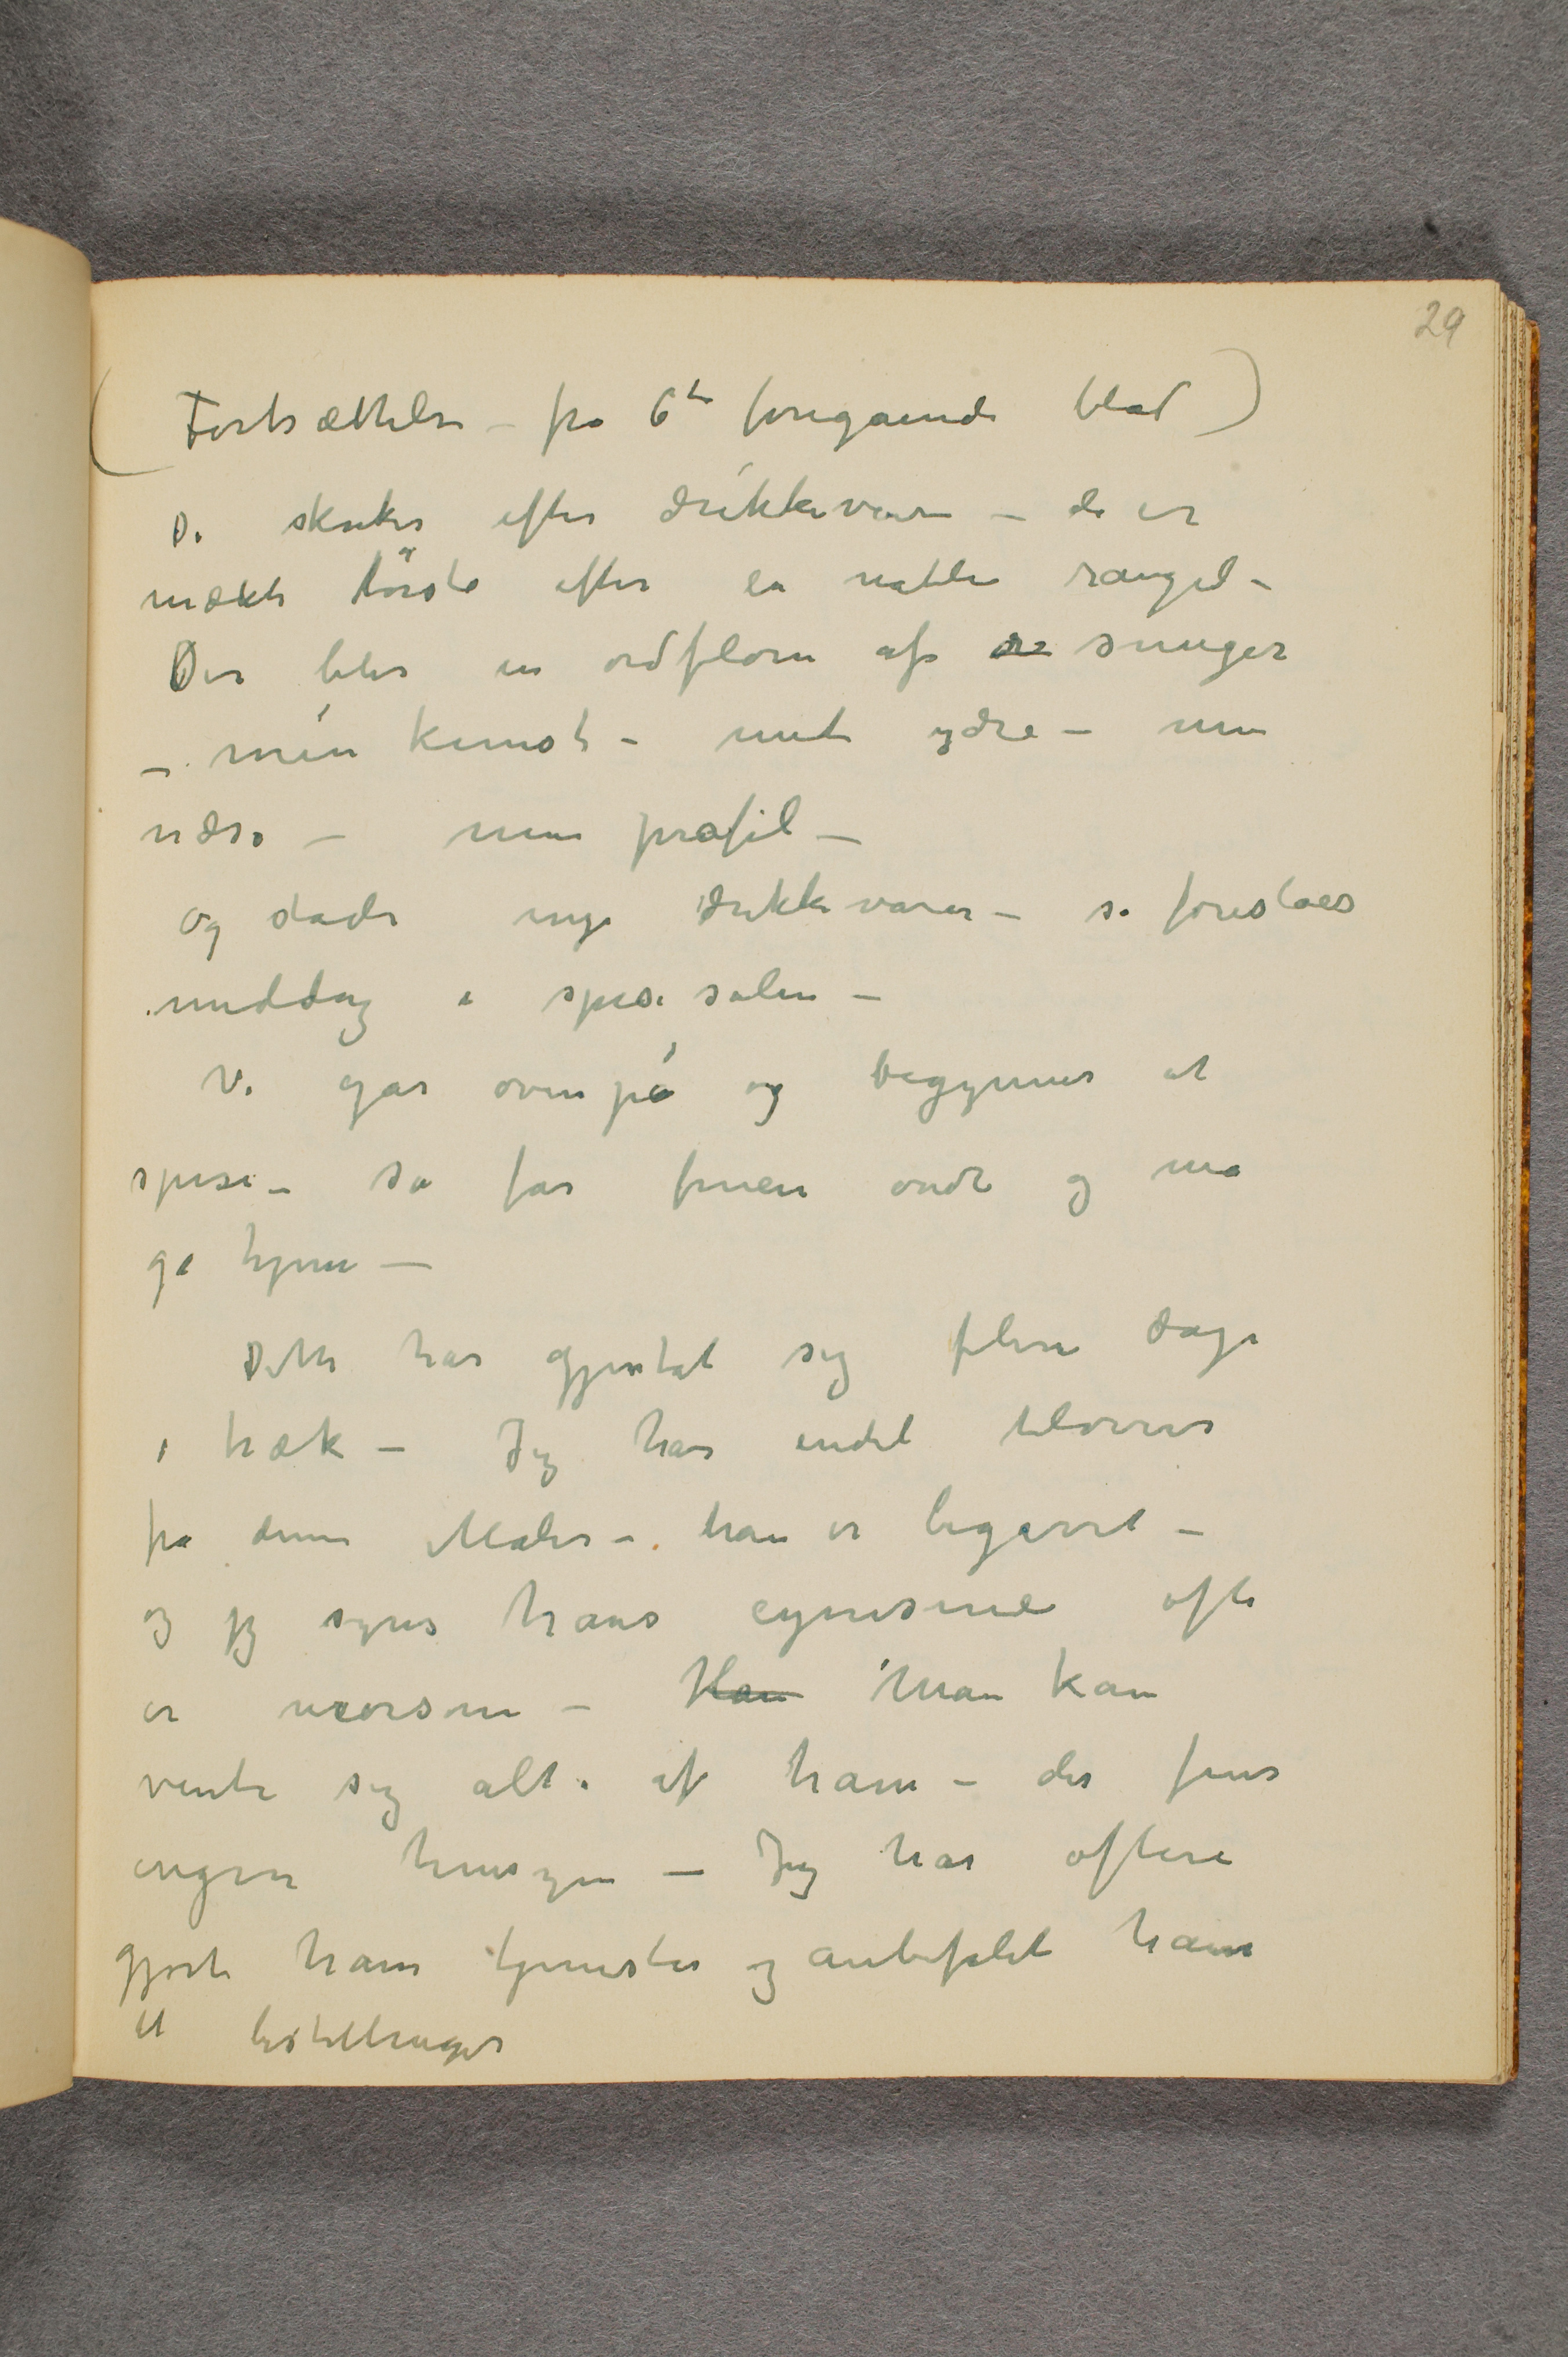 29
(Fortsættelse – fra 6te foregående blad)
De skriker efter drikkevare – de er
mækti törste efter en natlie rangel –
Der blir en ordflom af smiger
– min kunst – mit ydre – min
næse – min profil –
og stadi nye drikkevarer – så foreslaes
middag i spisesalen –
Vi går ovenpå og begynner at
spise – så får fruen ondt og må
gå hjem –
Dette har gjentat sig flere dage
i træk – Jeg har endel tilovers
fra denne Maler – han er begavet –
og jeg synes hans cynisme ofte
er morsom – Han Man kan
vente sig alt af ham – der fins
ingen hensyn – Jeg har oftere
gjort ham tjenester og anbefalet ham
til bestillinger